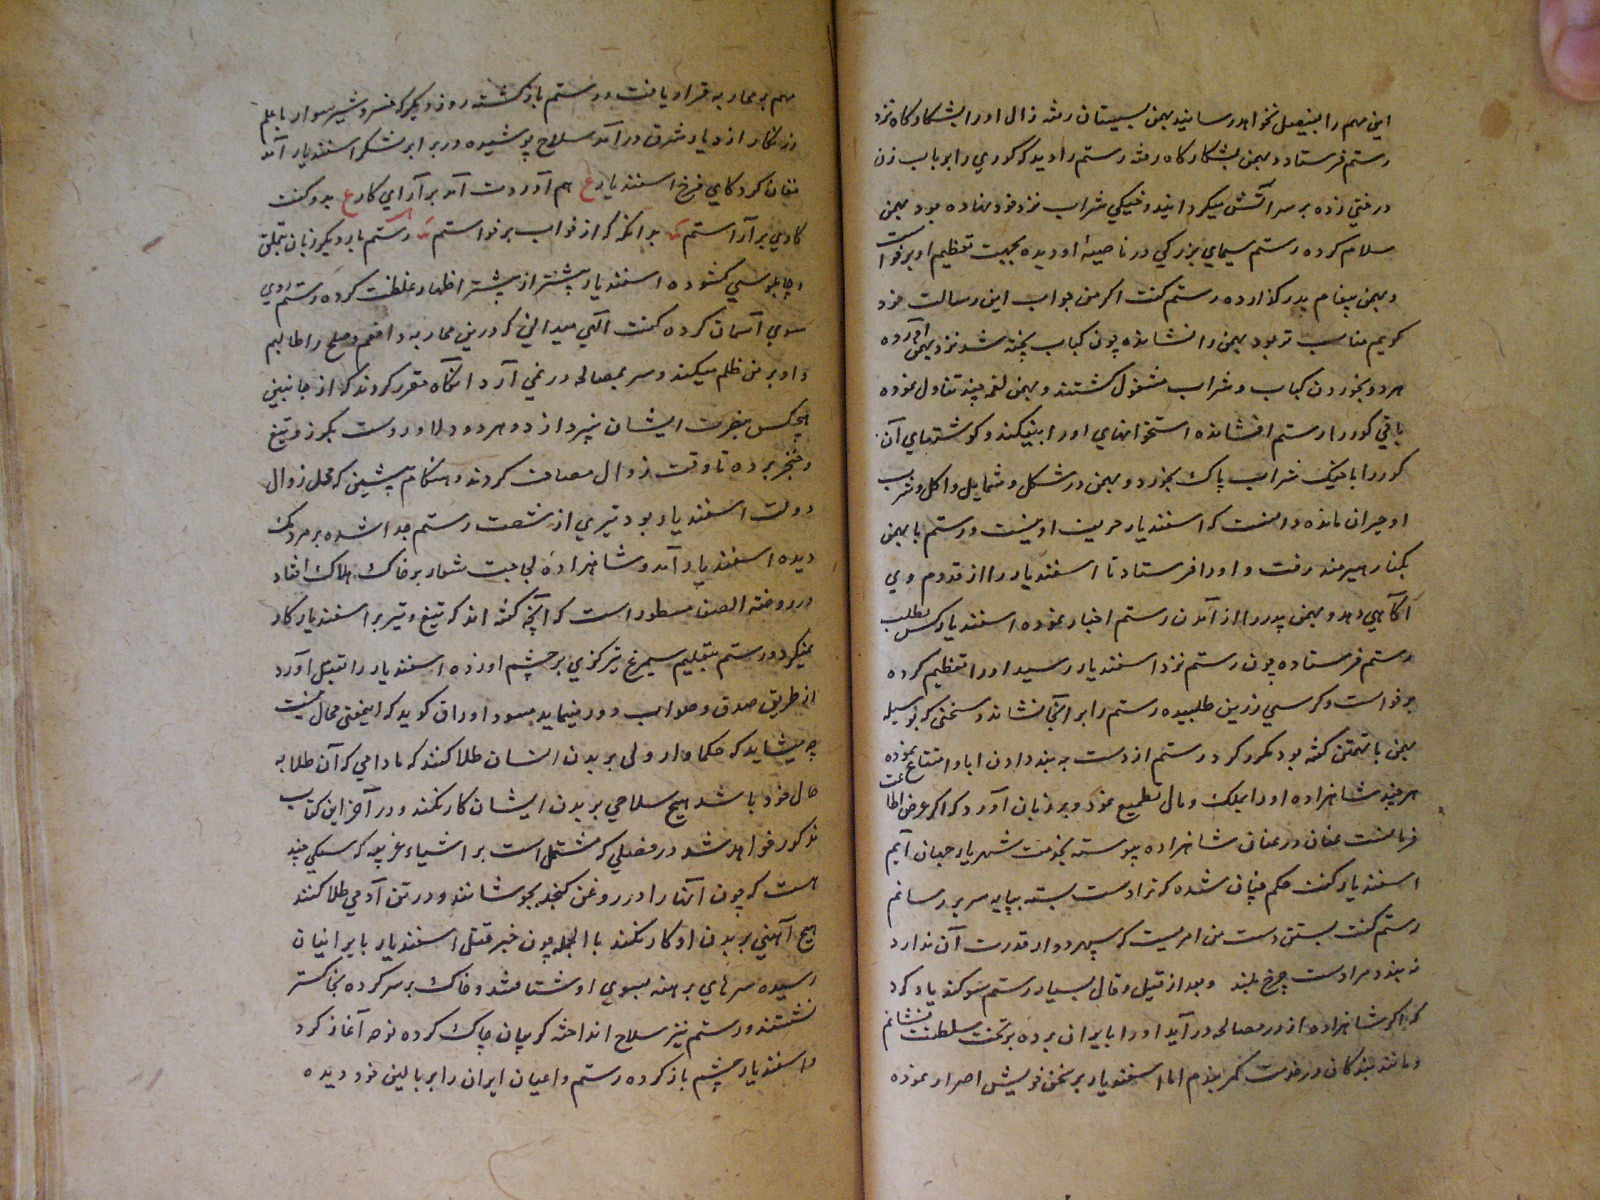 این مهم را بفیصل نخواهد رسانید بهمن بسیستان رفته زال او را بشکارگاه نزد
رستم فرستاد و بهمن بشکارگاه رفته رستم را دید که گوری را بر باب زن
درختی زده بر سر آتش میگرداند و خیکی شراب نزد خود نهاده بود بهمن
سلام کرده رستم سیمای بزرکی در ناصیهٔ او دیده بجهت تعظیم او برخواست
و بهمن پیغام پدر گذارده رستم گفت اگر من جواب این رسالت خود
گویم مناسب تر بود بهمن را نشانده چون کباب پخته شد نزد بهمن آورده
هر دو بخوردن کباب و شراب مشغول گشتند و بهمن لقمه چند تناول نموده
باقی گور را رستم افشانده استخوانهای او را بیفکند و گوشتهای آن
گور را با خیک شراب پاک بخورد و بهمن در شکل و شمایل و اکل و شرب
او حیران مانده دانست که اسفندیار حریف او نیست و رستم با بهمن
بکنار هیرمند رفت و او را فرستاد تا اسفندیار را از قدوم وی
آگاهی دهد و بهمن پدر را از آمدن رستم اخبار نموده اسفندیار کس بطلب
رستم فرستاده چون رستم نزد اسفندیار رسید او را تعظیم کرده
برخواست و کرسی زرین طلبیده رستم را بر آنجا نشاند و سخنی که بوسیله
بهمن با تهمتن گفته بود مکرر کرد رستم از دست به بند دادن ابا و امتناع نموده
هر چند شاهزاده او را بملک و مال تطمیع نمود و بر زبان آورد که اگر عرض اطاعت
فرمانست عنان در عنان شاهزاده پیوسته بخدمت شهریار جهان آیم
اسفندیار گفت حکم چنان شده که ترا دست بسته بپایه سریر رسانم
رستم گفت بستن دست من امریست که سپهر دوار قدرت آن ندارد
نه بندد مرا دست چرخ بلند و بعد از قیل و قال بسیار رستم سوگند یاد کرد
که اگر شاهزاده از در مصالحه در آید او را بایران برده بر تخت سلطنت نشانم
و مانند بندگان در خدمت کمر بندم اما اسفندیار بر سخن خویش اصرار نموده
مهم بر محاربه قرار یافت و رستم باز گشته روز دیگر که خسرو شیر سوار با علم
زرنگار از دیار شرق در آمد سلاح پوشیده در برابر لشکر اسفندیار آمد
فغان کرد کای فرخ اسفندیار ع هم آوردت آمد برآرای کار ع بدو گفت
کاری برآراستم بدانگه که از خواب برخواستم رستم بار دیگر زبان بتملق
و چاپلوسی گشوده اسفندیار پیشتر از پیشتر اظهار غلظت کرده رستم روی
سوی آسمان کرده گفت الهی میدانی که درین محاربه دافعم و صلح را طالبم
و او بر من ظلم میکند و سر بمصالحه در نمی آرد آنگاه مقرر کردند که از جانبین
هیچکس بنصرت ایشان نپردازد و هر دو دلاور دست بگرز و تیغ
و خنجر برده تا وقت زوال مصاف کردند و هنگام پیشین که محل زوال
دولت اسفندیار بود تیری از شصت رستم جدا شده بر مردمک
دیده اسفندیار آمد و شاهزاده بی جهت شعار بر خاک هلاک افتاد
در روضة الصفا مسطور است که آنچه گفته اند که تیغ و تیر بر اسفندیار کار
نمیکرد و رستم بتعلیم سیمرغ تیر گزی بر چشم او زده اسفندیار را بقتل آورد
از طریق صدق و صواب دور مینماید مسود اوراق گوید که این معنی محال نیست
چه میشاید که حکما داروئی بر بدن انسان طلا کنند که مادامی که آن طلا به
حال خود باشد هیچ سلاحی بر بدن ایشان کار نکند و در آخر این کتاب
مذکور خواهد شد در فصلی که مشتمل است بر اشیاء غریبه که سنگی چند
هست که چون آنها را در روغن کنجد بجوشانند و در تن آدمی طلا کنند
هیچ آهنی بر بدن او کار نکند با الجمله چون خبر قتل اسفندیار بایرانیان
رسیده سرهای برهنه بسوی او شتافتند و خاک بر سر کرده بخاکستر
نشستند و رستم نیز سلاح انداخته گریبان چاک کرده نوحه آغاز کرد
و اسفندیار چشم باز کرده رستم و اعیان ایران را بر بالین خود دیده